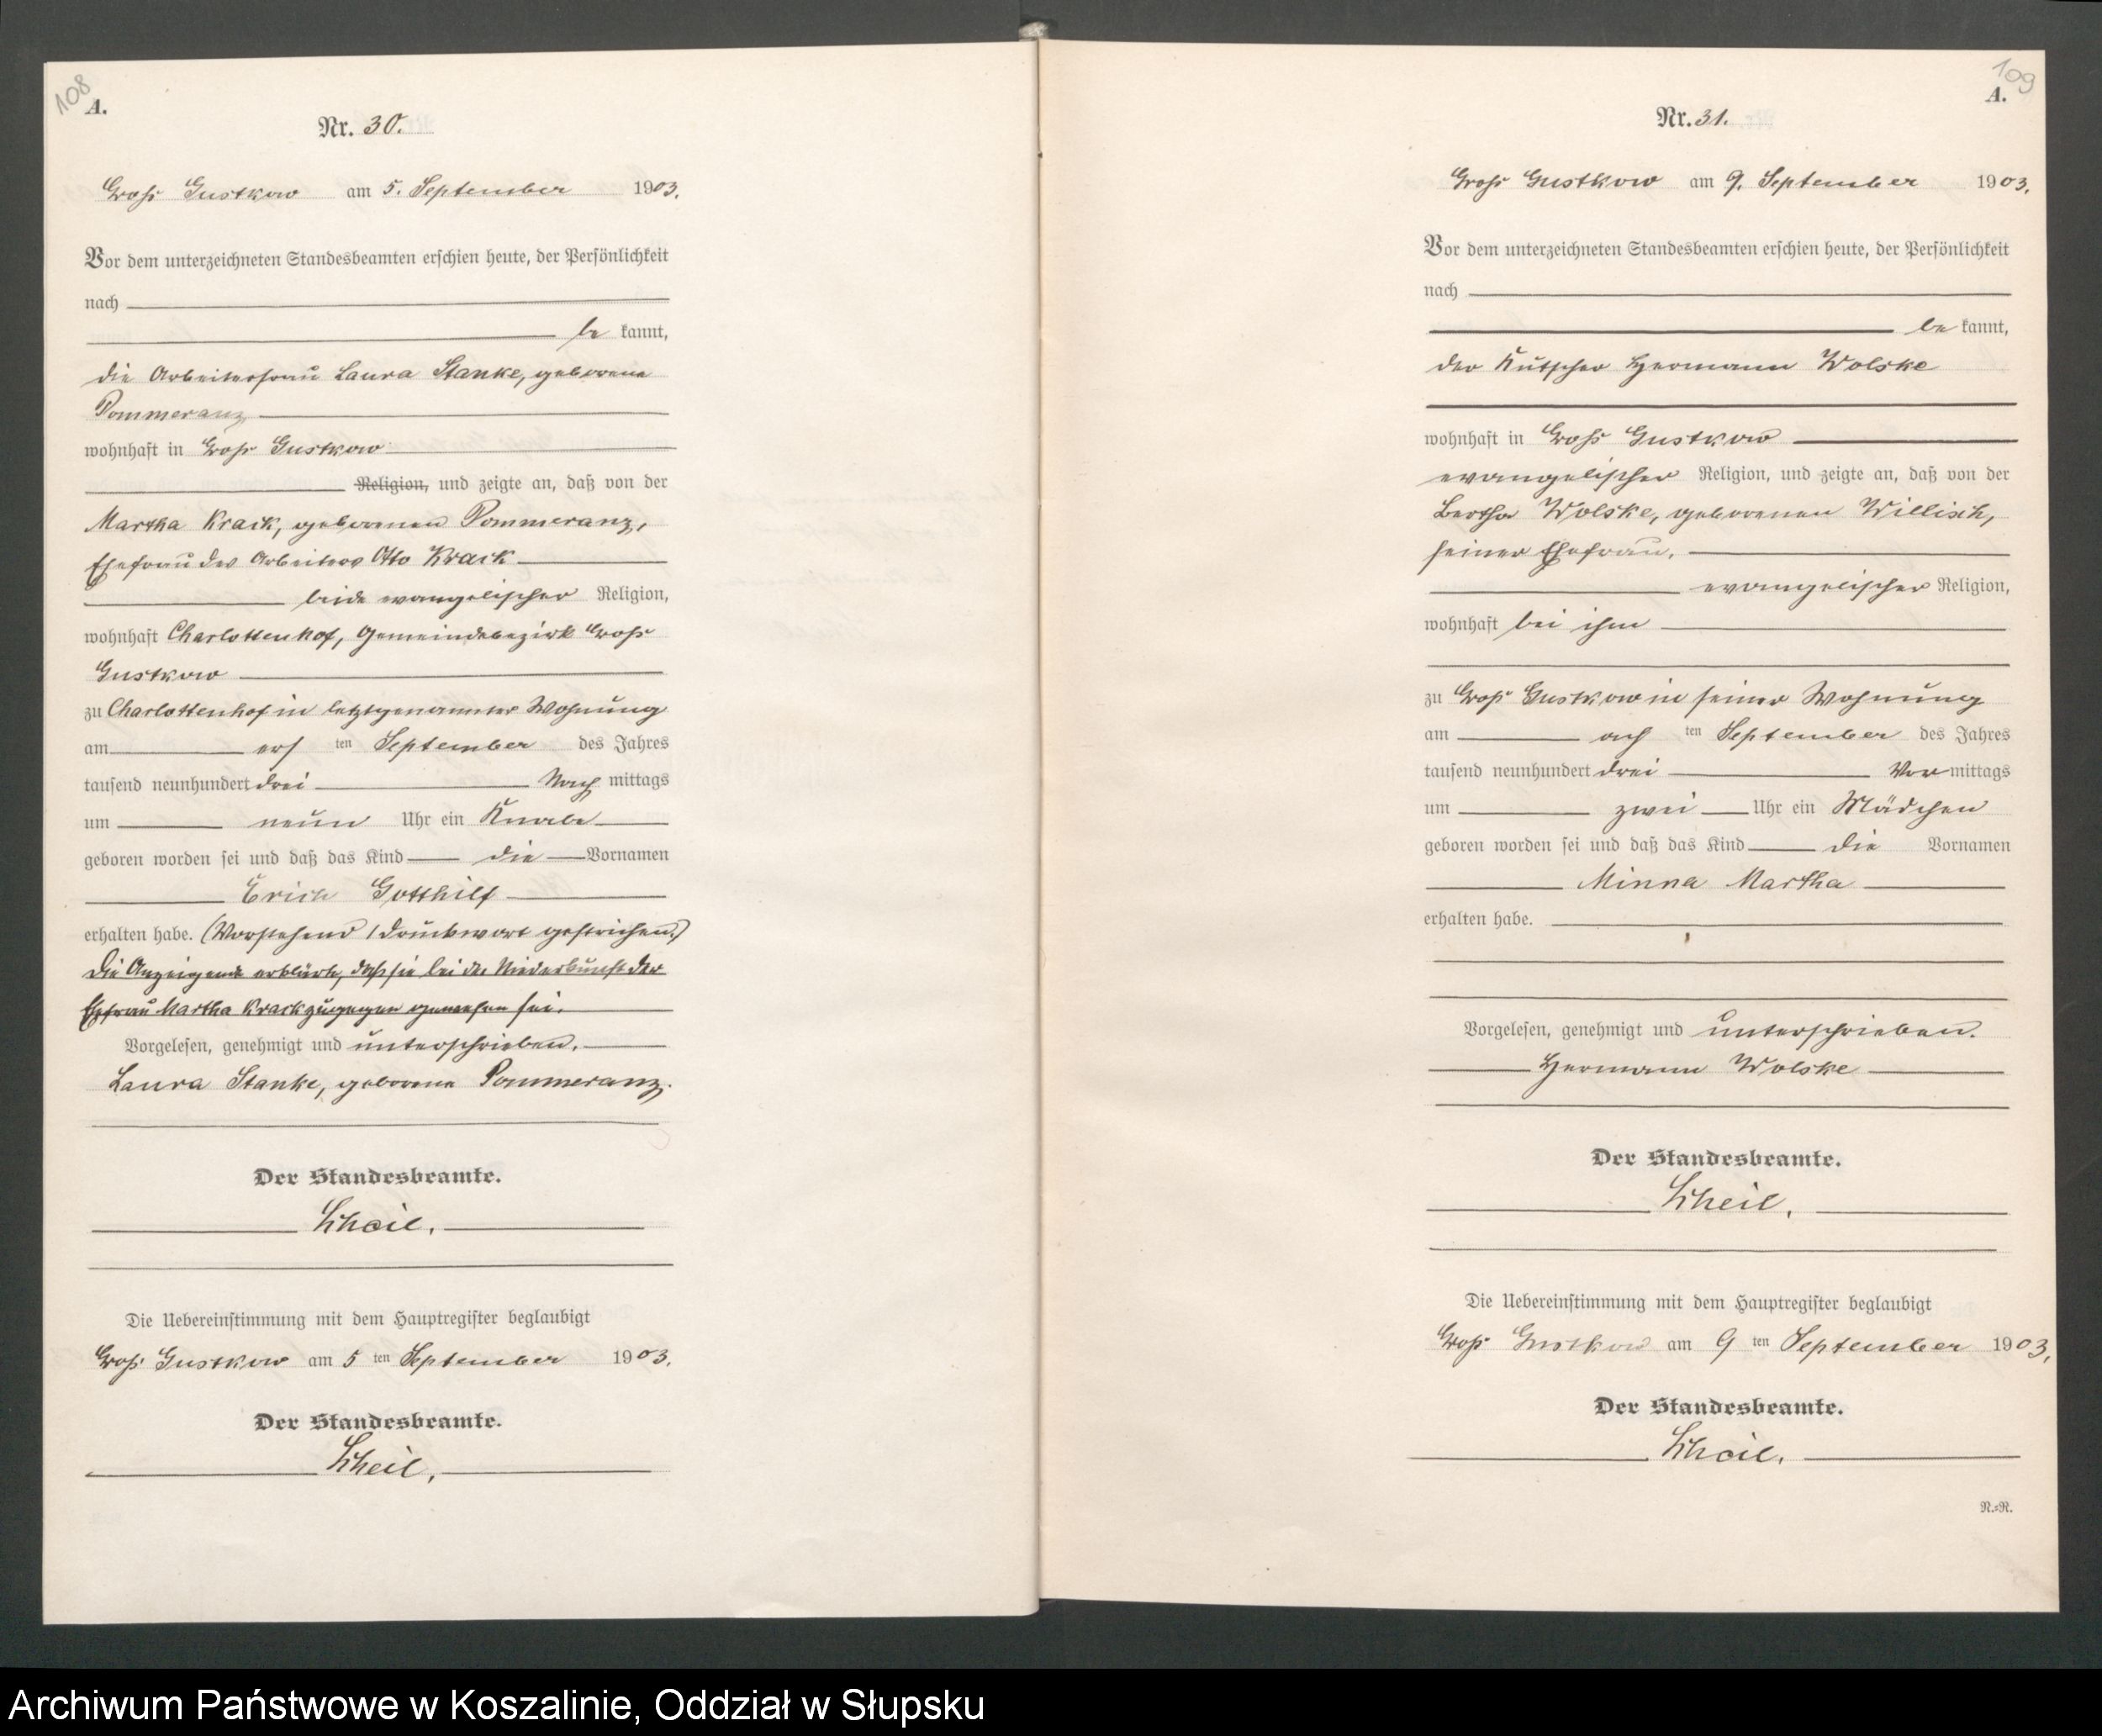 108
A.
Nr. 30.
Groß Gustkow am 5. September 1903.
Vor dem unterzeichneten Standesbeamten erschien heute, der Persönlichkeit
nach
be kannt,
die Arbeiterfrau Laura Stanke, geborene
Pommeranz,
wohnhaft in Groß Gustkow
Religion, und zeigte an, daß von der
Martha Krack, geborenen Pommeranz,
Ehefrau des Arbeiters Otto Krack
beide evangelischer Religion,
wohnhaft Charlottenhof, Gemeindebezirk Groß
Gustkow
zu Charlottenhof in letztgenannter Wohnung
am ers ten September des Jahres
tausend neunhundert drei Nach mittags
um neun Uhr ein Knabe
geboren worden sei und daß das Kind die Vornamen
Erich Gotthilf
erhalten habe. (Vorstehend 1 Druckwort gestrichen.)
Die Anzeigende erklärte, daß sie bei der Niederkunft der
Ehefrau Martha Krack zugegen gewesen sei.
Vorgelesen, genehmigt und unterschrieben.
Laura Stanke, geborene Pommeranz.
Der Standesbeamte.
Scheil.
Die Uebereinstimmung mit dem Hauptregister beglaubigt
Groß Gustkow am 5 ten September 1903.
Der Standesbeamte.
Scheil.
109
A.
Nr. 31.
Groß Gustkow am 9. September 1903.
Vor dem unterzeichneten Standesbeamten erschien heute, der Persönlichkeit
nach
be kannt,
der Kutscher Hermann Wolske
wohnhaft in Groß Gustkow
evangelischer Religion, und zeigte an, daß von der
Bertha Wolske, geborenen Willisch,
seiner Ehefrau,
evangelischer Religion,
wohnhaft bei ihm
zu Groß Gustkow in seiner Wohnung
am ach ten September des Jahres
tausend neunhundert drei Vor mittags
um zwei Uhr ein Mädchen
geboren worden sei und daß das Kind die Vornamen
Minna Martha
erhalten habe.
Vorgelesen, genehmigt und unterschrieben.
Hermann Wolske
Der Standesbeamte.
Scheil.
Die Uebereinstimmung mit dem Hauptregister beglaubigt
Groß Gustkow am 9 ten September 1903.
Der Standesbeamte.
Scheil.
N.-R.
Archiwum Państwowe w Koszalinie, Oddział w Słupsku